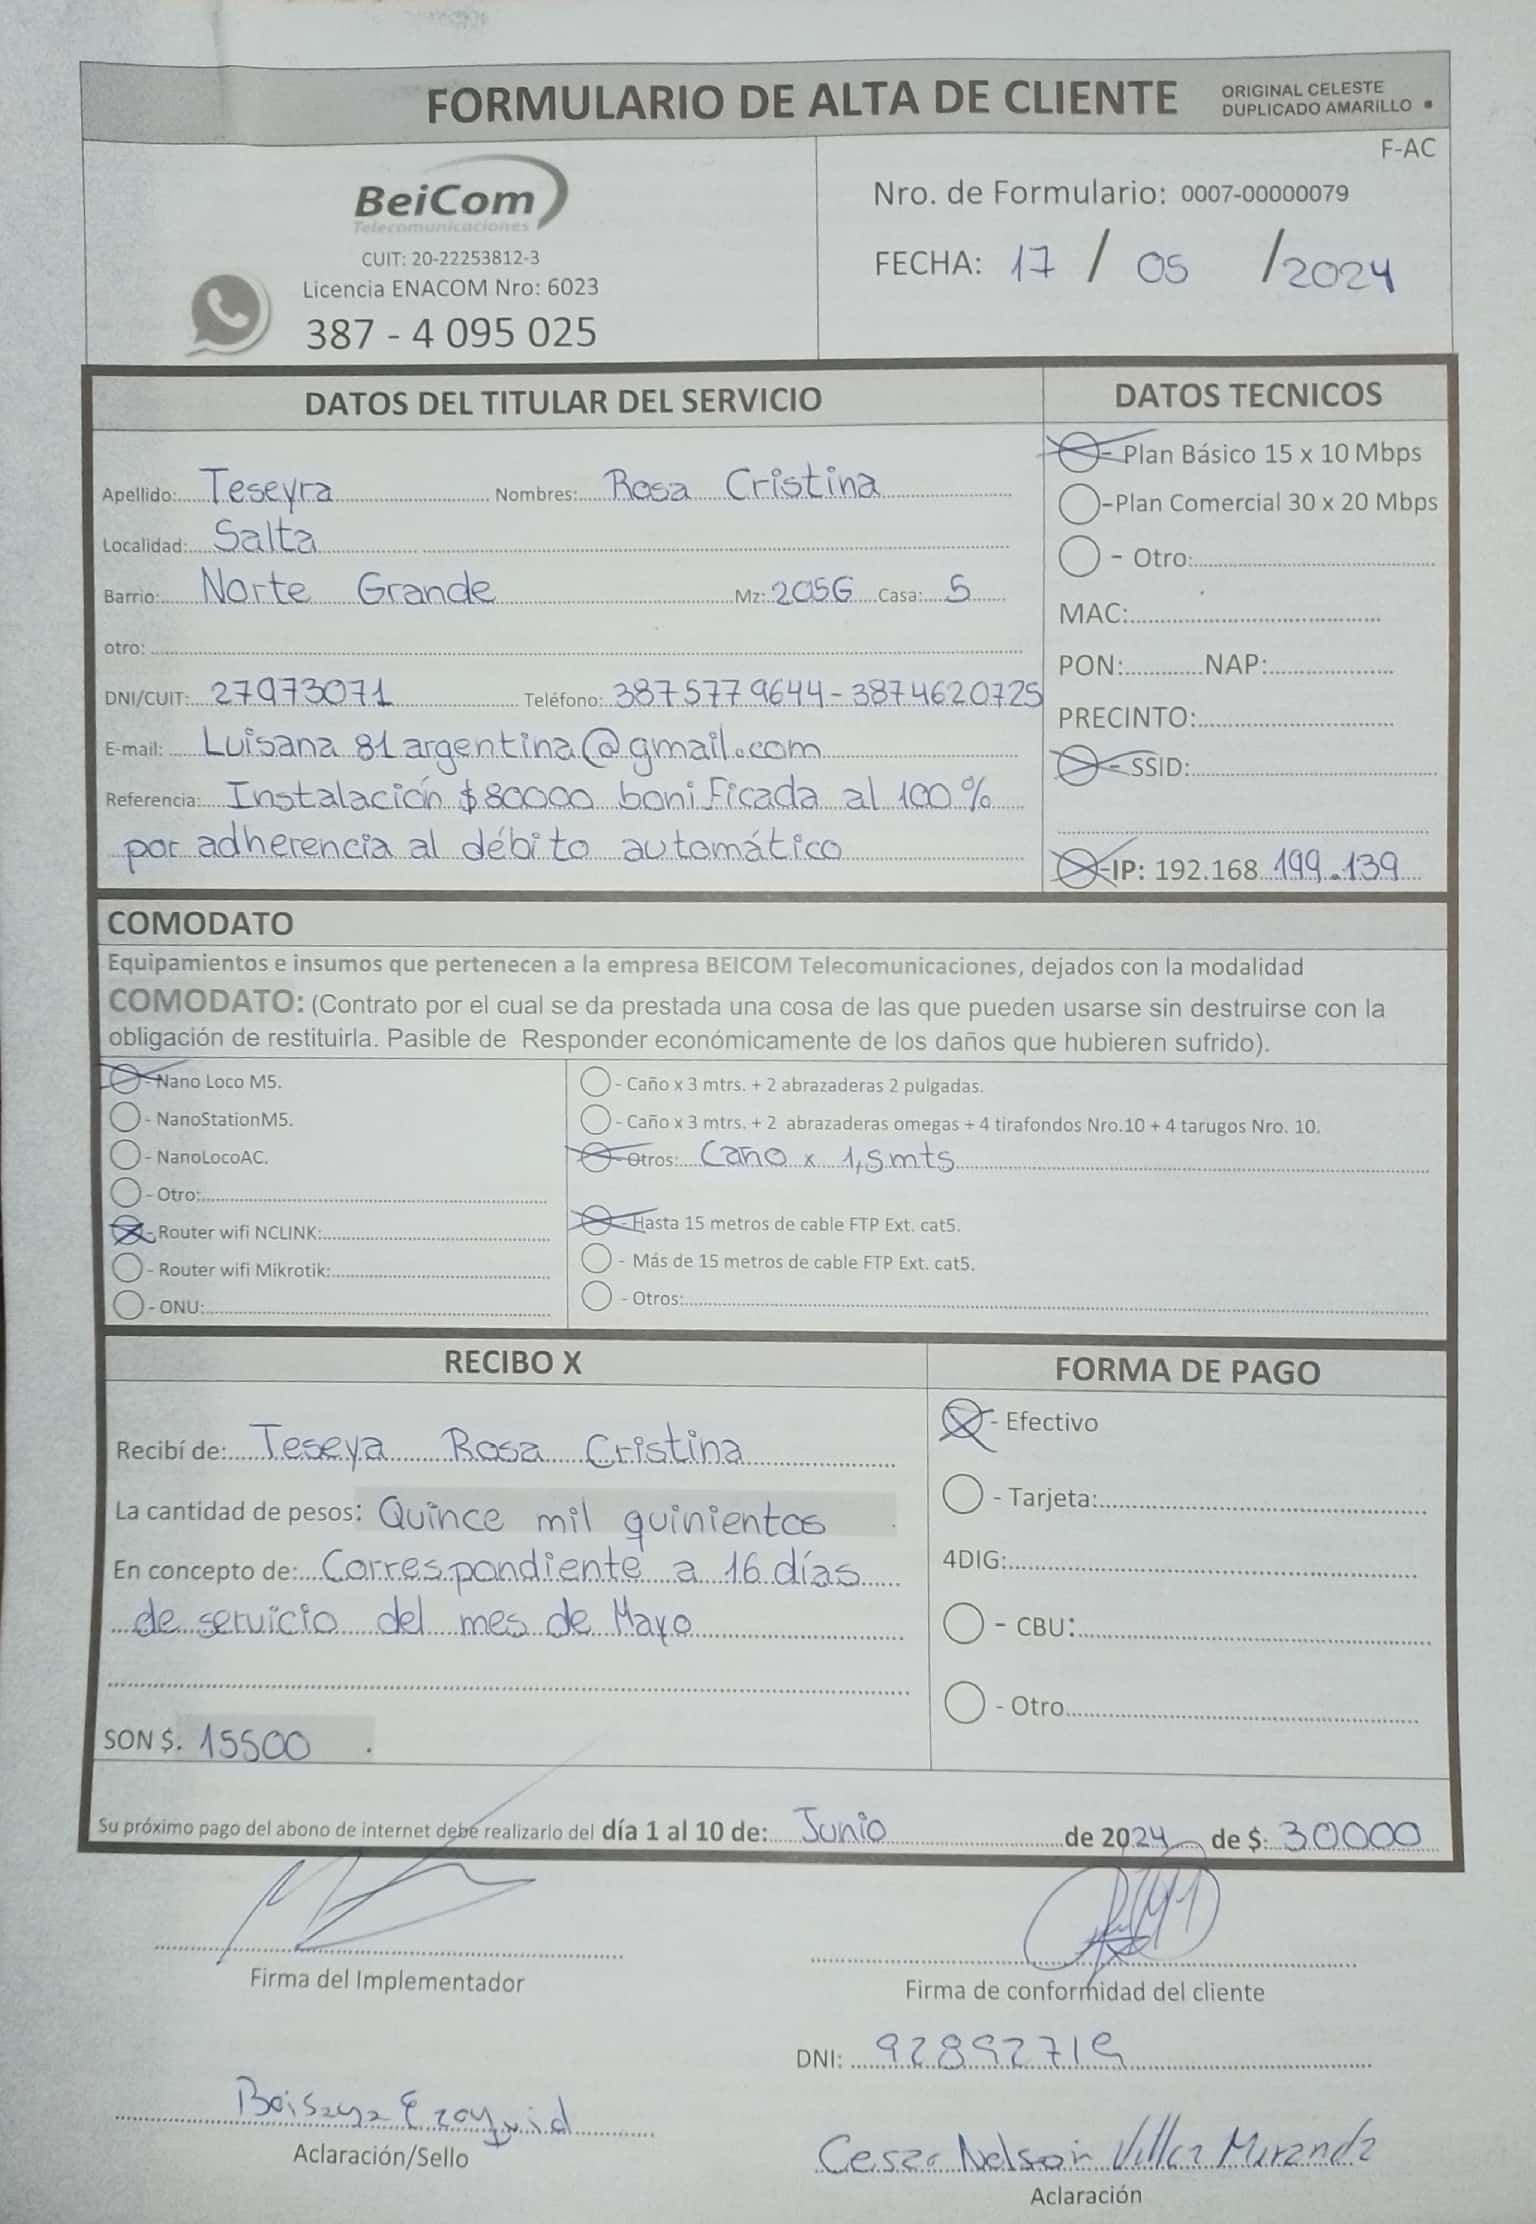 FORMULARIO DE ALTA DE CLIENTE
ORIGINAL CELESTE
DUPLICADO AMARILLO
F-AC
BeiCom
Telecomunicaciones
CUIT: 20-22253812-3
Licencia ENACOM Nro: 6023
387 - 4 095 025
Nro. de Formulario: 0007-00000079
FECHA: 17 / 05 / 2024
DATOS DEL TITULAR DEL SERVICIO
Apellido: Teseyra Nombres: Rosa Cristina
Localidad: Salta
Barrio: Norte Grande Mz: 205G Casa: 5
otro:
DNI/CUIT: 27973071 Teléfono: 3875779644-3874620725
E-mail: Luisana81argentina@gmail.com
Referencia: Instalación $80000 bonificada al 100%
por adherencia al débito automático
DATOS TECNICOS
- Plan Básico 15 x 10 Mbps
-Plan Comercial 30 x 20 Mbps
- Otro:
MAC:
PON: NAP:
PRECINTO:
- SSID:
-IP: 192.168.199.139
COMODATO
Equipamientos e insumos que pertenecen a la empresa BEICOM Telecomunicaciones, dejados con la modalidad
COMODATO: (Contrato por el cual se da prestada una cosa de las que pueden usarse sin destruirse con la
obligación de restituirla. Pasible de Responder económicamente de los daños que hubieren sufrido).
- Nano Loco M5.
- NanoStationM5.
- NanoLocoAC.
- Otro:
- Router wifi NCLINK:
- Router wifi Mikrotik:
- ONU:
- Caño x 3 mtrs. + 2 abrazaderas 2 pulgadas.
- Caño x 3 mtrs. + 2 abrazaderas omegas + 4 tirafondos Nro.10 + 4 tarugos Nro. 10.
- Otros: Caño x 1,5mts
- Hasta 15 metros de cable FTP Ext. cat5.
- Más de 15 metros de cable FTP Ext. cat5.
- Otros:
RECIBO X
Recibí de: Teseya Rosa Cristina
La cantidad de pesos: Quince mil quinientos
En concepto de: Correspondiente a 16 días
de servicio del mes de Mayo
SON $. 15500
FORMA DE PAGO
- Efectivo
- Tarjeta:
4DIG:
- CBU:
- Otro
Su próximo pago del abono de internet debe realizarlo del día 1 al 10 de: Junio de 2024 de $: 30000
Firma del Implementador
Firma de conformidad del cliente
DNI: 92892719
Aclaración/Sello
Cesar Nelson Villca Miranda
Aclaración